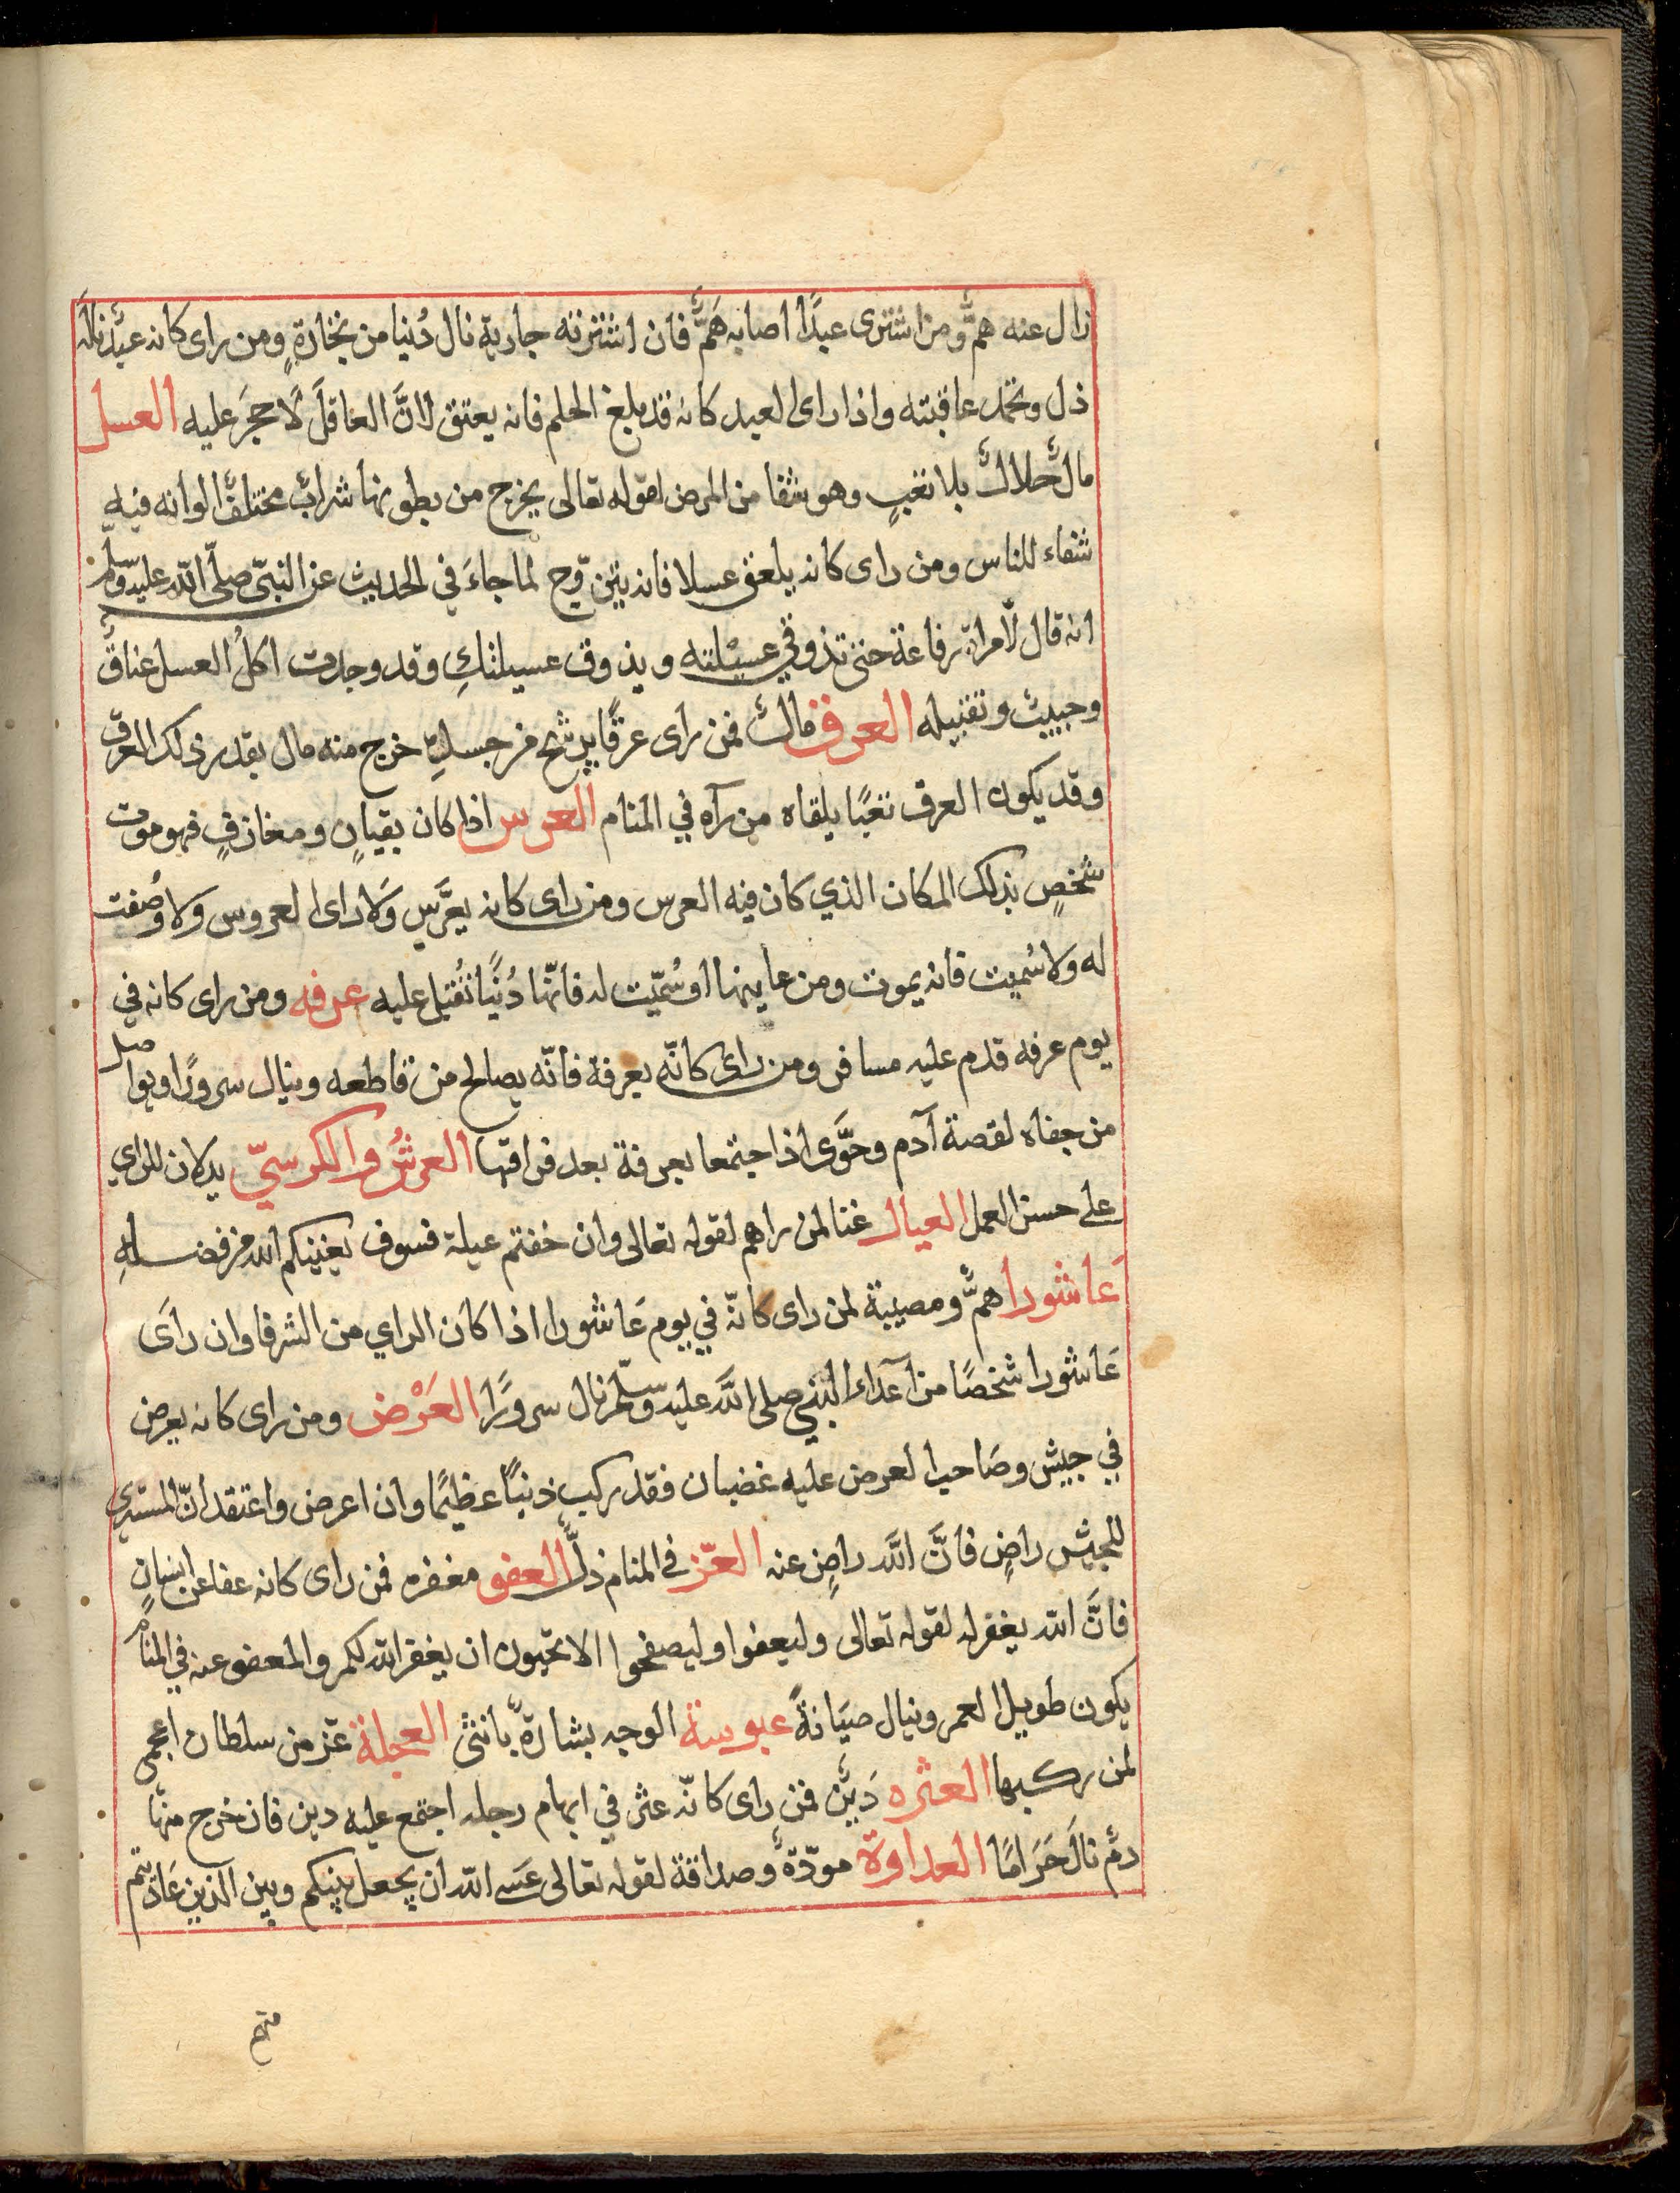 زال عنه همٌّ ومن اشترى عبدًا اصابه هَمٌّ فان اشترته جارية نال دُنيا من تجارةٍ ومن راى كانه عبدٌ ناله
ذل وتحمد عاقبته واذا راى العبد كانه قد بلغ الحلم فانه يعتق لانَّ العاقلَ لَا حجَرَ عليه العسل
مالٌ حلالٌ بلا تعبٍ وهو شفا من المرض لقوله تعالى يخرج من بطونها شرابٌ مختلفٌ الوانه فيه
شفاء للناس ومن راى كانه يلعق عسلا فانه يتزوّج لما جاءَ في الحديث عن النبىّ صلّى اللّه عليه وسلّم
انه قال لامراة رفاعة حتى تذوقي عسيْلته ويذوق عسيلتكِ وقد وجدت اكلُ العسل عناقُ
وحبيبٌ وتقبيله العرق مالٌ فمن راى عرقًا يرشح من جسدِه خرج منه مال بقدر ذلك العرق
وقد يكون العرق تعبًا يلقاه من رآه في المنام العرس اذا كان بقيانٍ ومعازفٍ فهو موت
شخصٍ بذلك المكان الذي كان فيه العرس ومن راى كانه يعرَّس وَلا راى العروس ولا وُصفت
له وَلا سُميت فانه يموت ومن عاينها او سُمّيت له فانّها دُنيًا تُقبل عليه عرفه ومن راى كانه في
يوم عرفه قدم عليه مسافر ومن راى كانّه بعرفة فانّه يصالح من قاطعه وينال سرورًا ويواصل
من جفاه لقصة آدم وحوَّى اذا اجتمعا بعرفة بعد فراقها العرشُ والكرسيّ يدلان للراي
على حسن العمل العيال غنا لمن راهم لقوله تعالى وان خفتم عيلة فسوف يغنيكم الله من فضله
عَاشورا همٌّ ومصيبة لمن راى كانّه في يوم عَاشورا اذا كان الراي من الشرفا وان رأى
عَاشورا شخصًا من آعداء النبي صلى اللّه عليه وسلّم نال سرورًا العَرْض ومن راى كانه يعرض
في جيش وصَاحب العرض عليه غضبان فقد ركب ذنبًا عظيمًا وان اعرض واعتقد انّ المستدعي
للجيش راضٍ فانَّ اللَّه راضٍ عنه العّز في المنام ذلٌّ العفو مغفره فمن راى كانه عفا عن انسانٍ
فانَّ اللّه يغفر له لقوله تعالى وليعفوا وليصفحوا الا تحبون ان يغفر اللّه لكم والمعفو عنه في المنام
يكون طويل العمر وينال صيَانةً عبوسة الوجه بشارةٌ بانثى العجلة عّز من سلطان اعجمى
لمن ركبها العثره دَينٌ فمن راى كانّه عثر في ابهام رجله اجتمع عليه دين فان خرج منها
دمٌ نالَ حَرَامًا العداوة مودّةٌ وصداقة لقوله تعالى عَسى اللّه ان يجعل بينكم وبين الذين عَاديتم
منهم